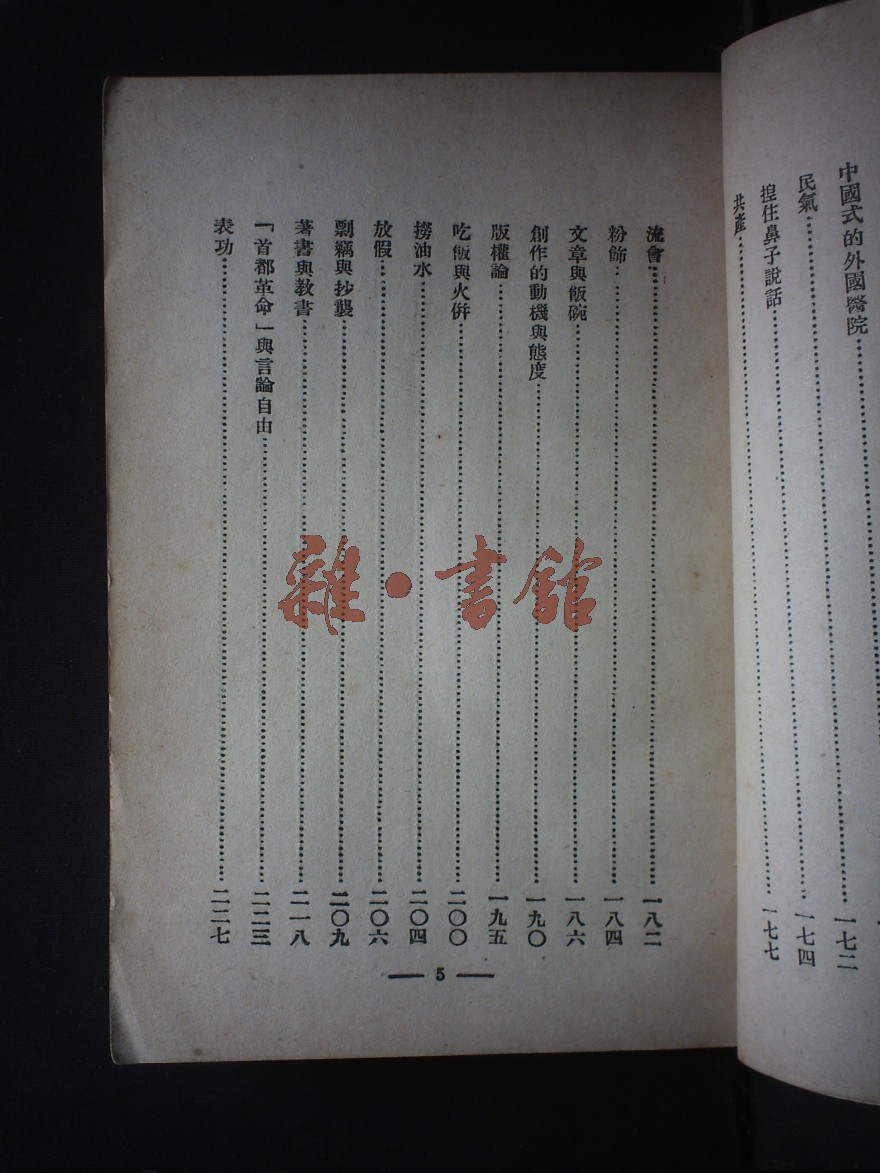 中國式的外國醫院……一七二
民氣……一七四
揑住鼻子說話……一七七
共產……
流會……一八二
粉飾……一八四
文章與飯碗……一八六
創作的動機與態度……一九〇
版權論……一九五
吃飯與火併……二〇〇
撈油水……二〇四
放假……二〇六
剽竊與抄襲……二〇九
著書與教書……二一八
「首都革命」與言論自由……二二三
表功……二二七
— 5 —
雜·書館